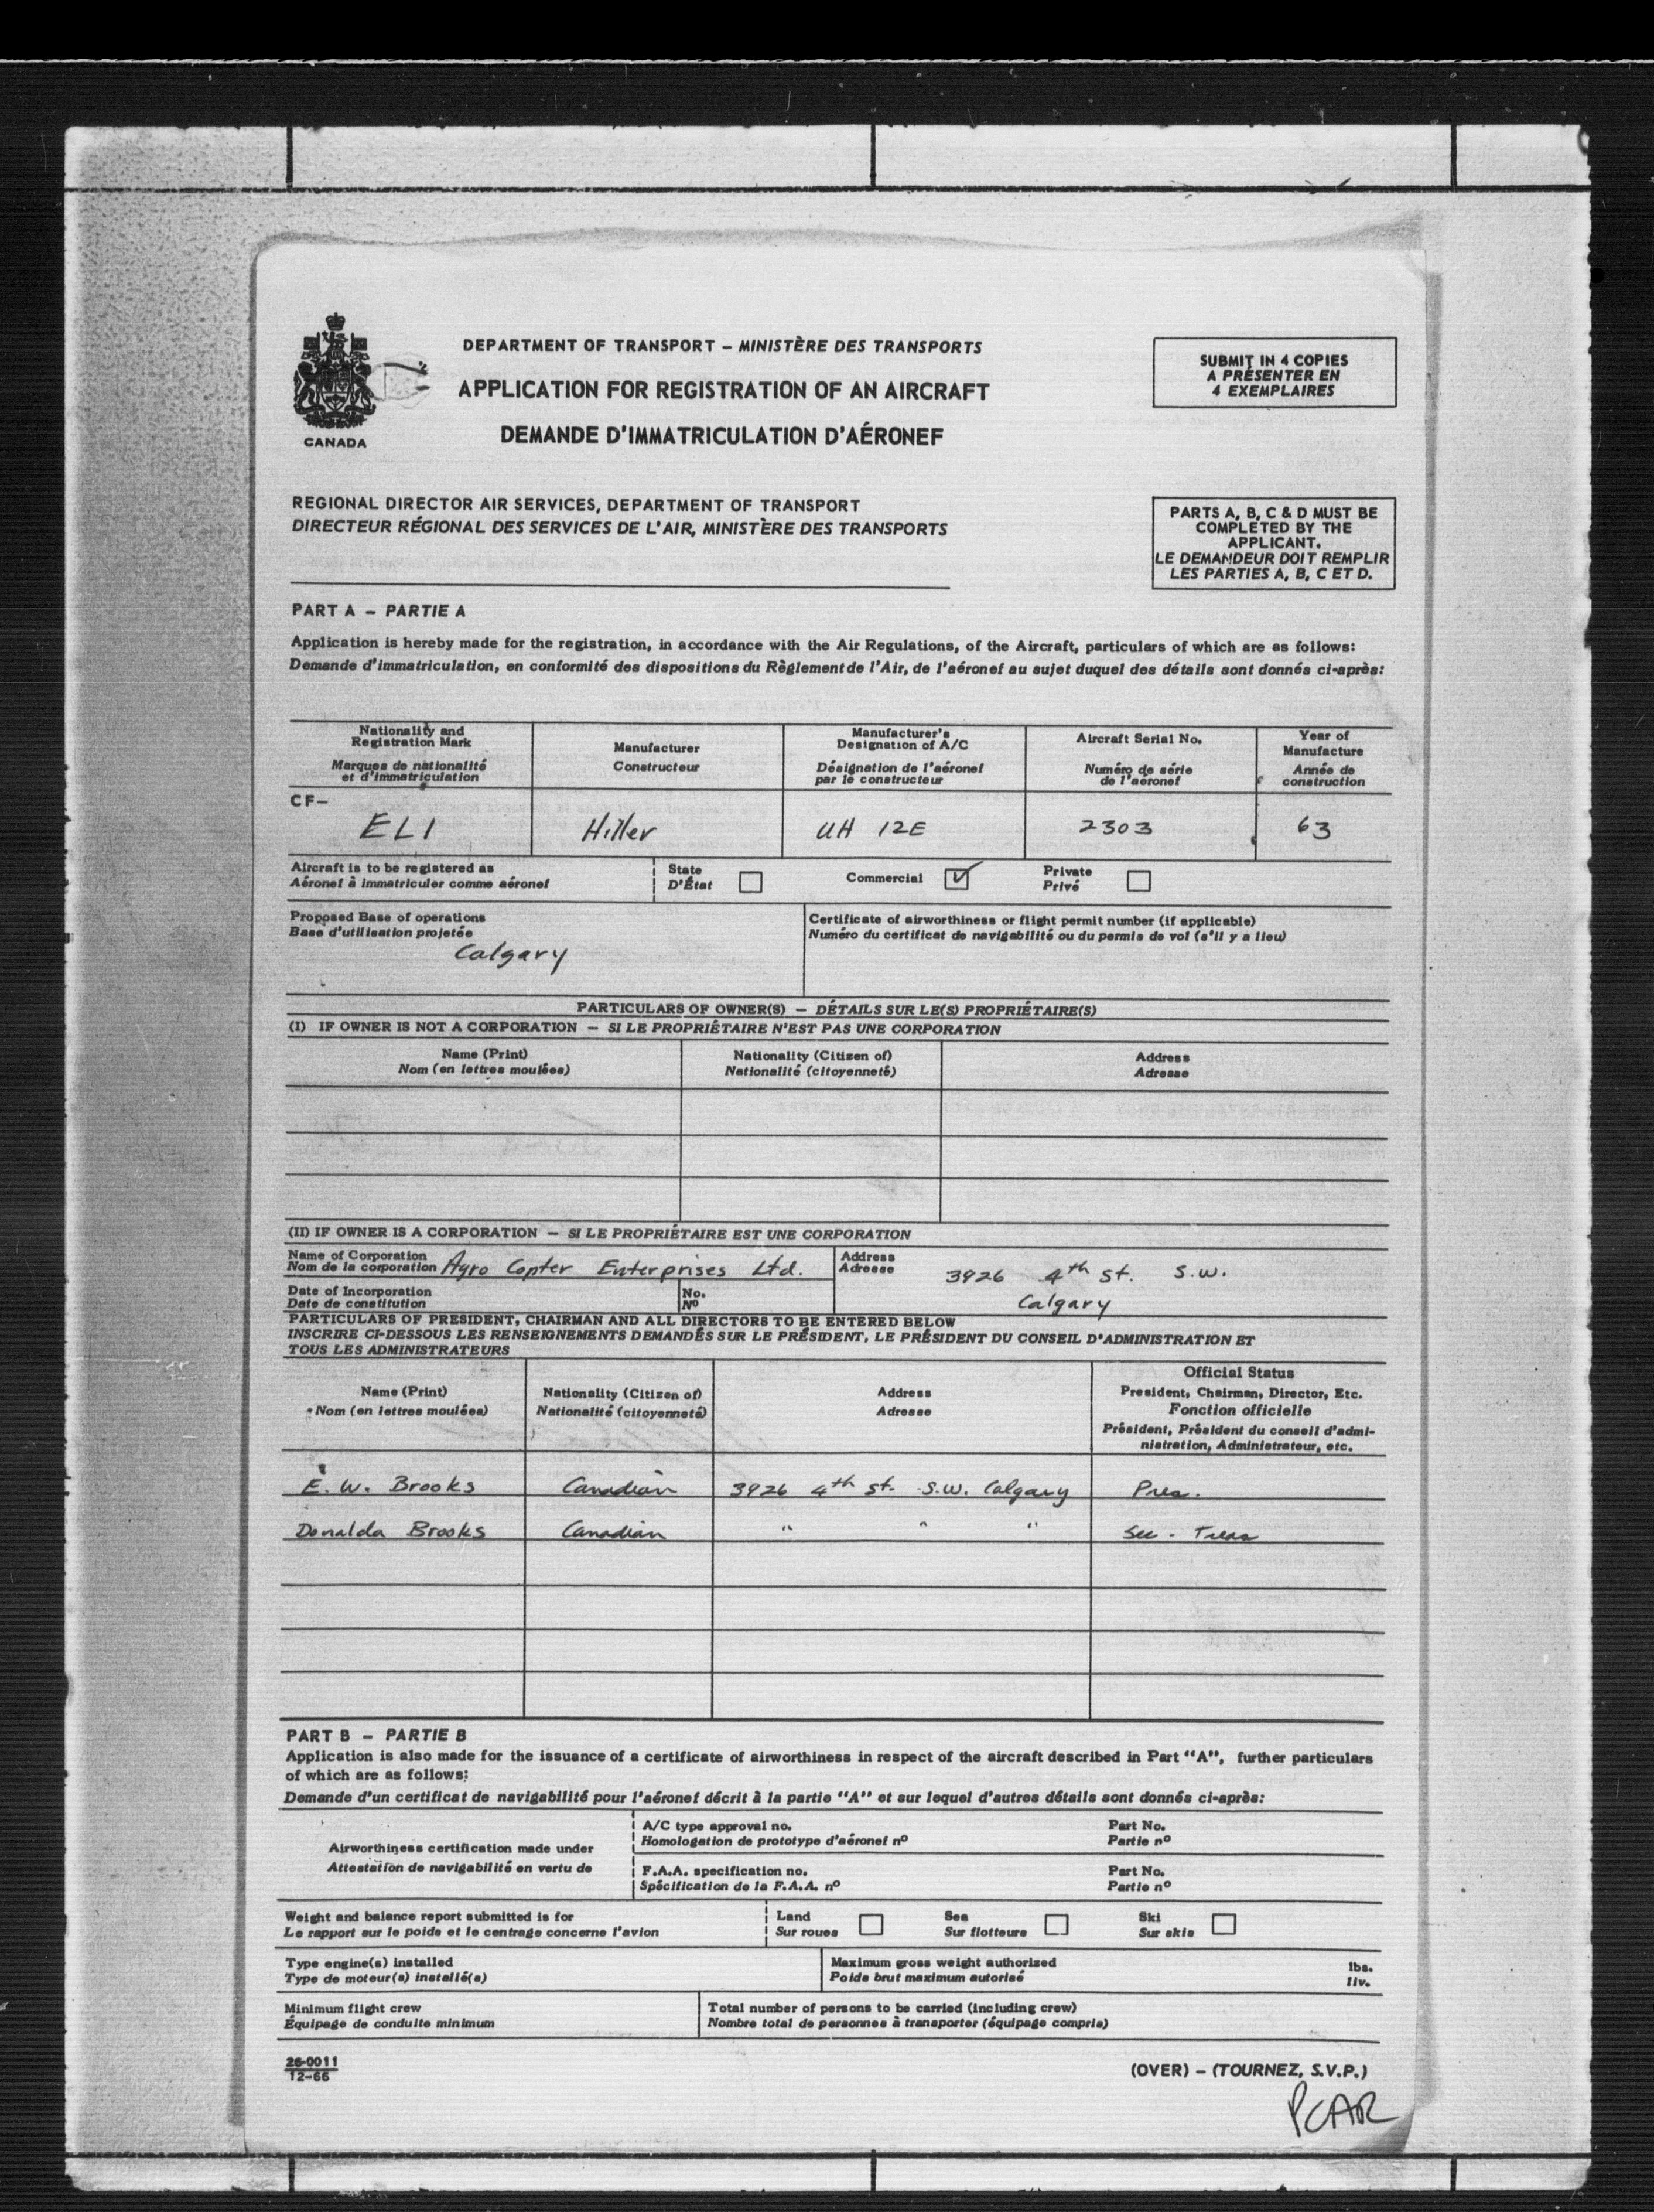 DEPARTMENT OF TRANSPORT – MINISTÈRE DES TRANSPORTS
APPLICATION FOR REGISTRATION OF AN AIRCRAFT
DEMANDE D'IMMATRICULATION D'AÉRONEF
CANADA
SUBMIT IN 4 COPIES
A PRÉSENTER EN
4 EXEMPLAIRES
REGIONAL DIRECTOR AIR SERVICES, DEPARTMENT OF TRANSPORT
DIRECTEUR RÉGIONAL DES SERVICES DE L'AIR, MINISTÈRE DES TRANSPORTS
PARTS A, B, C & D MUST BE
COMPLETED BY THE
APPLICANT.
LE DEMANDEUR DOIT REMPLIR
LES PARTIES A, B, C ET D.
PART A – PARTIE A
Application is hereby made for the registration, in accordance with the Air Regulations, of the Aircraft, particulars of which are as follows:
Demande d'immatriculation, en conformité des dispositions du Règlement de l'Air, de l'aéronef au sujet duquel des détails sont donnés ci-après:
Nationality and
Registration Mark
Marques de nationalité
et d'immatriculation
Manufacturer
Constructeur
Manufacturer's
Designation of A/C
Désignation de l'aéronef
par le constructeur
Aircraft Serial No.
Numéro de série
de l'aéronef
Year of
Manufacture
Année de
construction
CF–
ELI
Hiller
UH 12E
2303
63
Aircraft is to be registered as
Aéronef à immatriculer comme aéronef
State
D'État
Commercial
Private
Privé
Proposed Base of operations
Base d'utilisation projetée
Calgary
Certificate of airworthiness or flight permit number (if applicable)
Numéro du certificat de navigabilité ou du permis de vol (s'il y a lieu)
PARTICULARS OF OWNER(S) – DÉTAILS SUR LE(S) PROPRIÉTAIRE(S)
(I) IF OWNER IS NOT A CORPORATION – SI LE PROPRIÉTAIRE N'EST PAS UNE CORPORATION
Name (Print)
Nom (en lettres moulées)
Nationality (Citizen of)
Nationalité (citoyenneté)
Address
Adresse
(II) IF OWNER IS A CORPORATION – SI LE PROPRIÉTAIRE EST UNE CORPORATION
Name of Corporation
Nom de la corporation Agro Copter Enterprises Ltd.
Address
Adresse
3926 4th St. S.W.
Calgary
Date of Incorporation
Date de constitution
No.
Nº
PARTICULARS OF PRESIDENT, CHAIRMAN AND ALL DIRECTORS TO BE ENTERED BELOW
INSCRIRE CI-DESSOUS LES RENSEIGNEMENTS DEMANDÉS SUR LE PRÉSIDENT, LE PRÉSIDENT DU CONSEIL D'ADMINISTRATION ET
TOUS LES ADMINISTRATEURS
Name (Print)
Nom (en lettres moulées)
Nationality (Citizen of)
Nationalité (citoyenneté)
Address
Adresse
Official Status
President, Chairman, Director, Etc.
Fonction officielle
Président, Président du conseil d'admi-
nistration, Administrateur, etc.
E. W. Brooks Canadian 3926 4th St. S.W. Calgary Pres.
Donalda Brooks Canadian " " " Sec - Treas
PART B – PARTIE B
Application is also made for the issuance of a certificate of airworthiness in respect of the aircraft described in Part "A", further particulars
of which are as follows:
Demande d'un certificat de navigabilité pour l'aéronef décrit à la partie "A" et sur lequel d'autres détails sont donnés ci-après:
Airworthiness certification made under
Attestation de navigabilité en vertu de
A/C type approval no.
Homologation de prototype d'aéronef nº
Part No.
Partie nº
F.A.A. specification no.
Spécification de la F.A.A. nº
Part No.
Partie nº
Weight and balance report submitted is for
Le rapport sur le poids et le centrage concerne l'avion
Land
Sur roues
Sea
Sur flotteurs
Ski
Sur skis
Type engine(s) installed
Type de moteur(s) installé(s)
Maximum gross weight authorized
Poids brut maximum autorisé
lbs.
liv.
Minimum flight crew
Équipage de conduite minimum
Total number of persons to be carried (including crew)
Nombre total de personnes à transporter (équipage compris)
26-0011
12-66
(OVER) – (TOURNEZ, S.V.P.)
PCAR